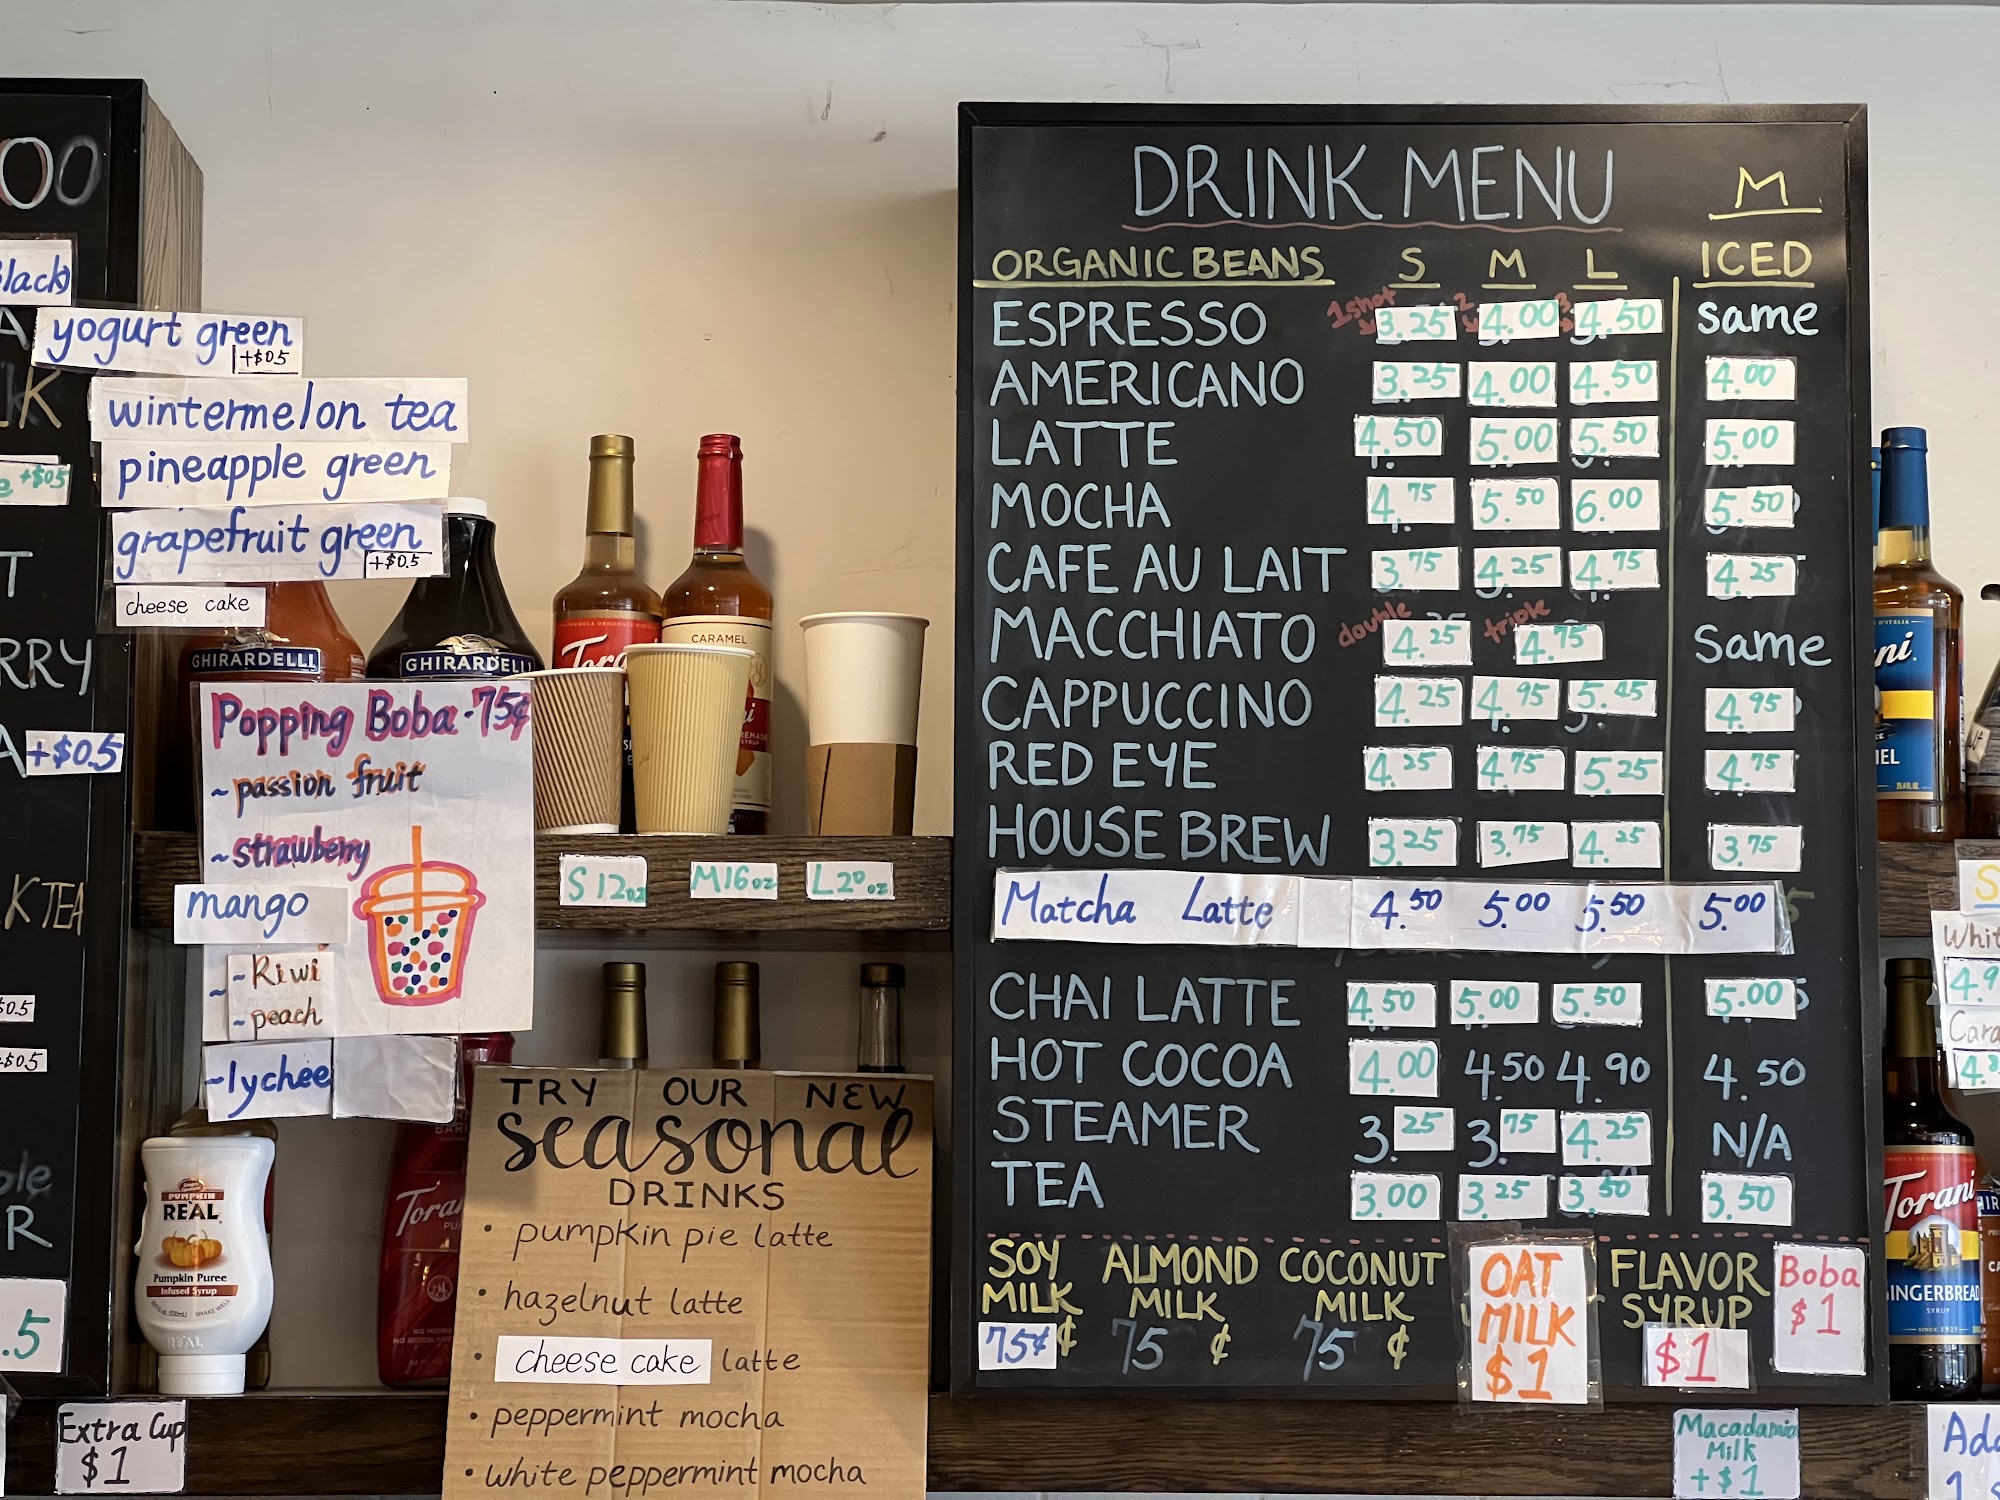 lack)
yogurt green
+$0.5
wintermelon tea
pineapple green
+$0.5
grapefruit green
+$0.5
cheese cake
RRY
+$0.5
K TEA
$0.5
+$0.5
.5
Extra Cup
$1
GHIRARDELLI
GHIRARDELLI
CARAMEL
Popping Boba - 75¢
~ passion fruit
~ strawberry
mango
~ Kiwi
~ peach
~ lychee
S 12oz
M16oz
L20oz
PUMPKIN
REAL
Pumpkin Puree
Infused Syrup
REAL
Torani
TRY OUR NEW
seasonal
DRINKS
• pumpkin pie latte
• hazelnut latte
• cheese cake latte
• peppermint mocha
• white peppermint mocha
DRINK MENU M
ORGANIC BEANS S M L ICED
ESPRESSO 1shot 3.25 2 4.00 3 4.50 same
AMERICANO 3.25 4.00 4.50 4.00
LATTE 4.50 5.00 5.50 5.00
MOCHA 4.75 5.50 6.00 5.50
CAFE AU LAIT 3.75 4.25 4.75 4.25
MACCHIATO double 4.25 triple 4.75 same
CAPPUCCINO 4.25 4.95 5.45 4.95
RED EYE 4.25 4.75 5.25 4.75
HOUSE BREW 3.25 3.75 4.25 3.75
Matcha Latte 4.50 5.00 5.50 5.00
CHAI LATTE 4.50 5.00 5.50 5.00
HOT COCOA 4.00 4.50 4.90 4.50
STEAMER 3.25 3.75 4.25 N/A
TEA 3.00 3.25 3.50 3.50
SOY MILK 75¢
ALMOND MILK 75¢
COCONUT MILK 75¢
OAT MILK $1
FLAVOR SYRUP $1
Boba $1
Macadamia
Milk
+$1
Torani
GINGERBREAD
SYRUP